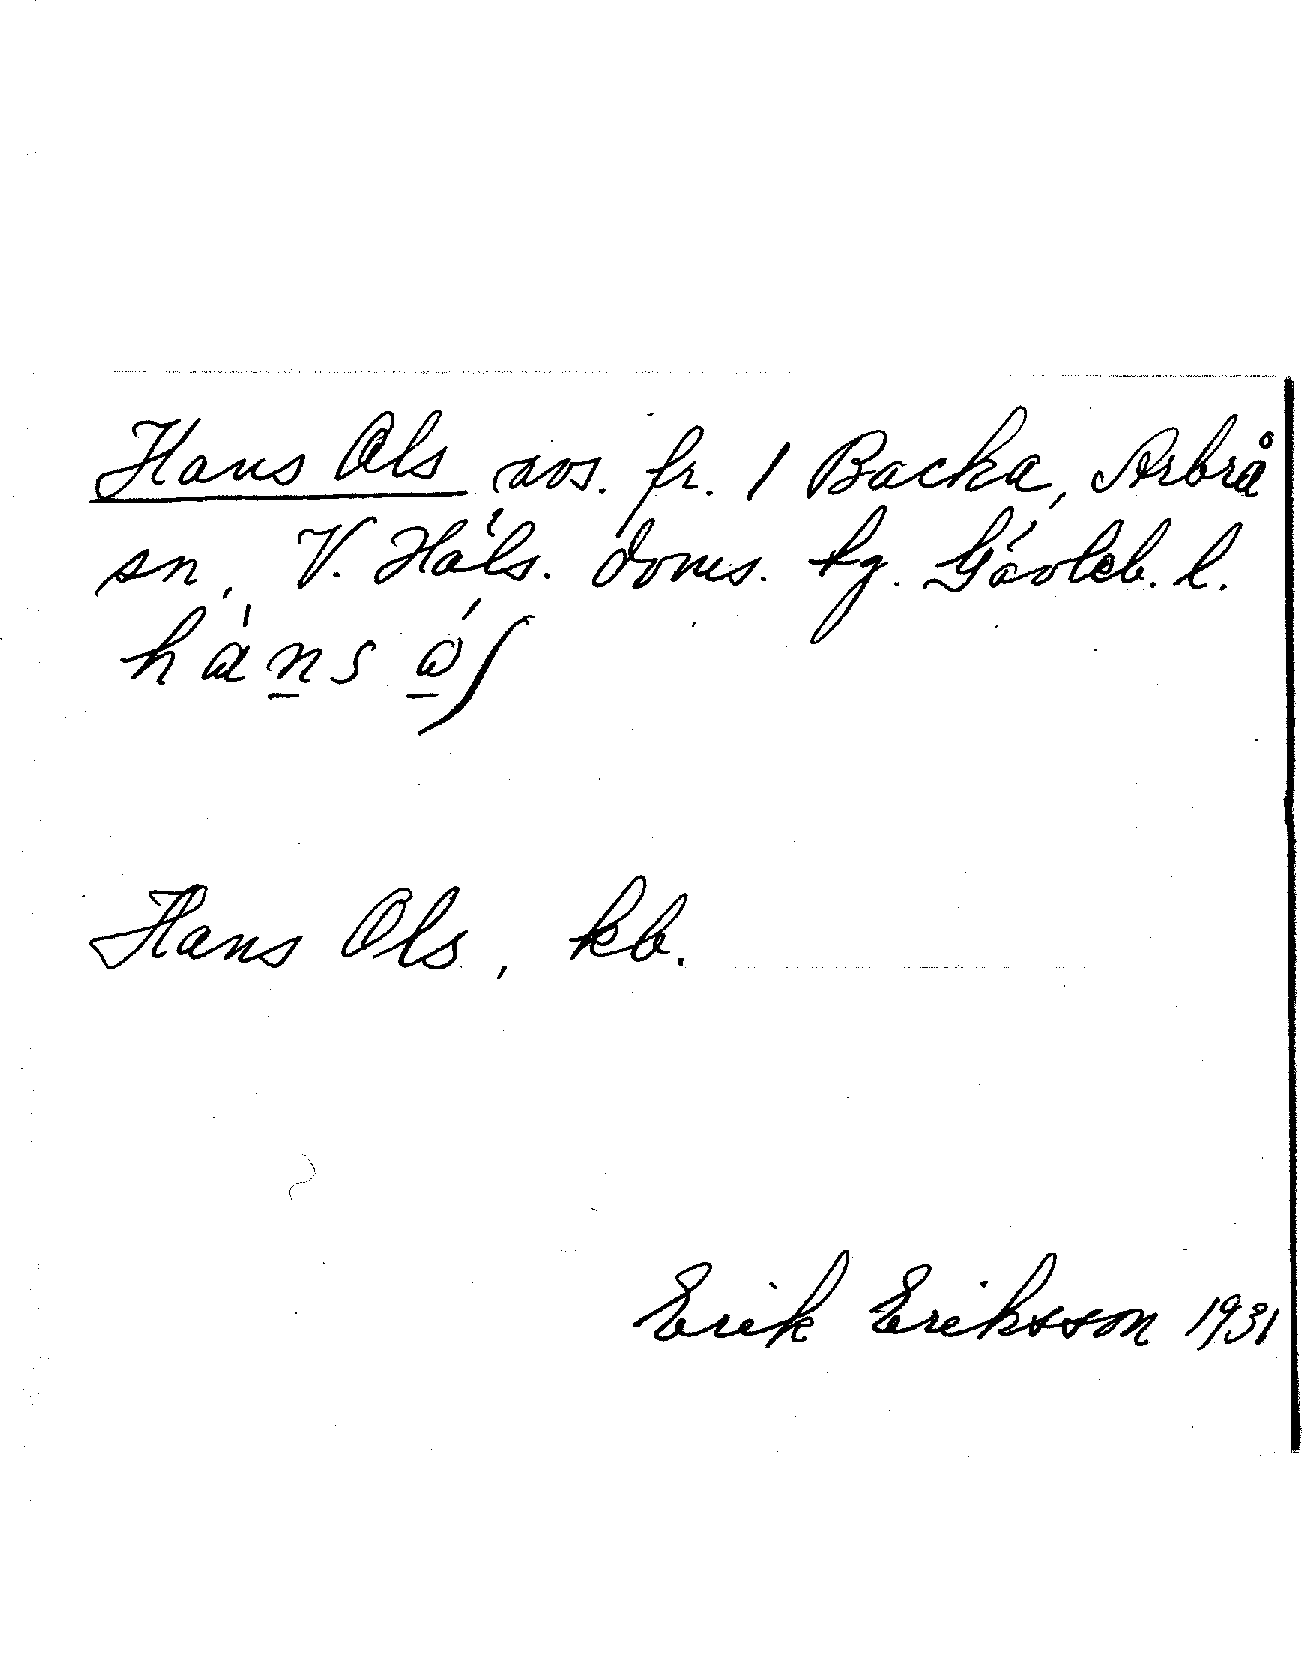 Hans Ols avs. fr. 1 Backa, Arbrå
sn, V. Häls. doms. tg. Gävleb. l.
Hans Ols, kb.
Erik Eriksson 1931